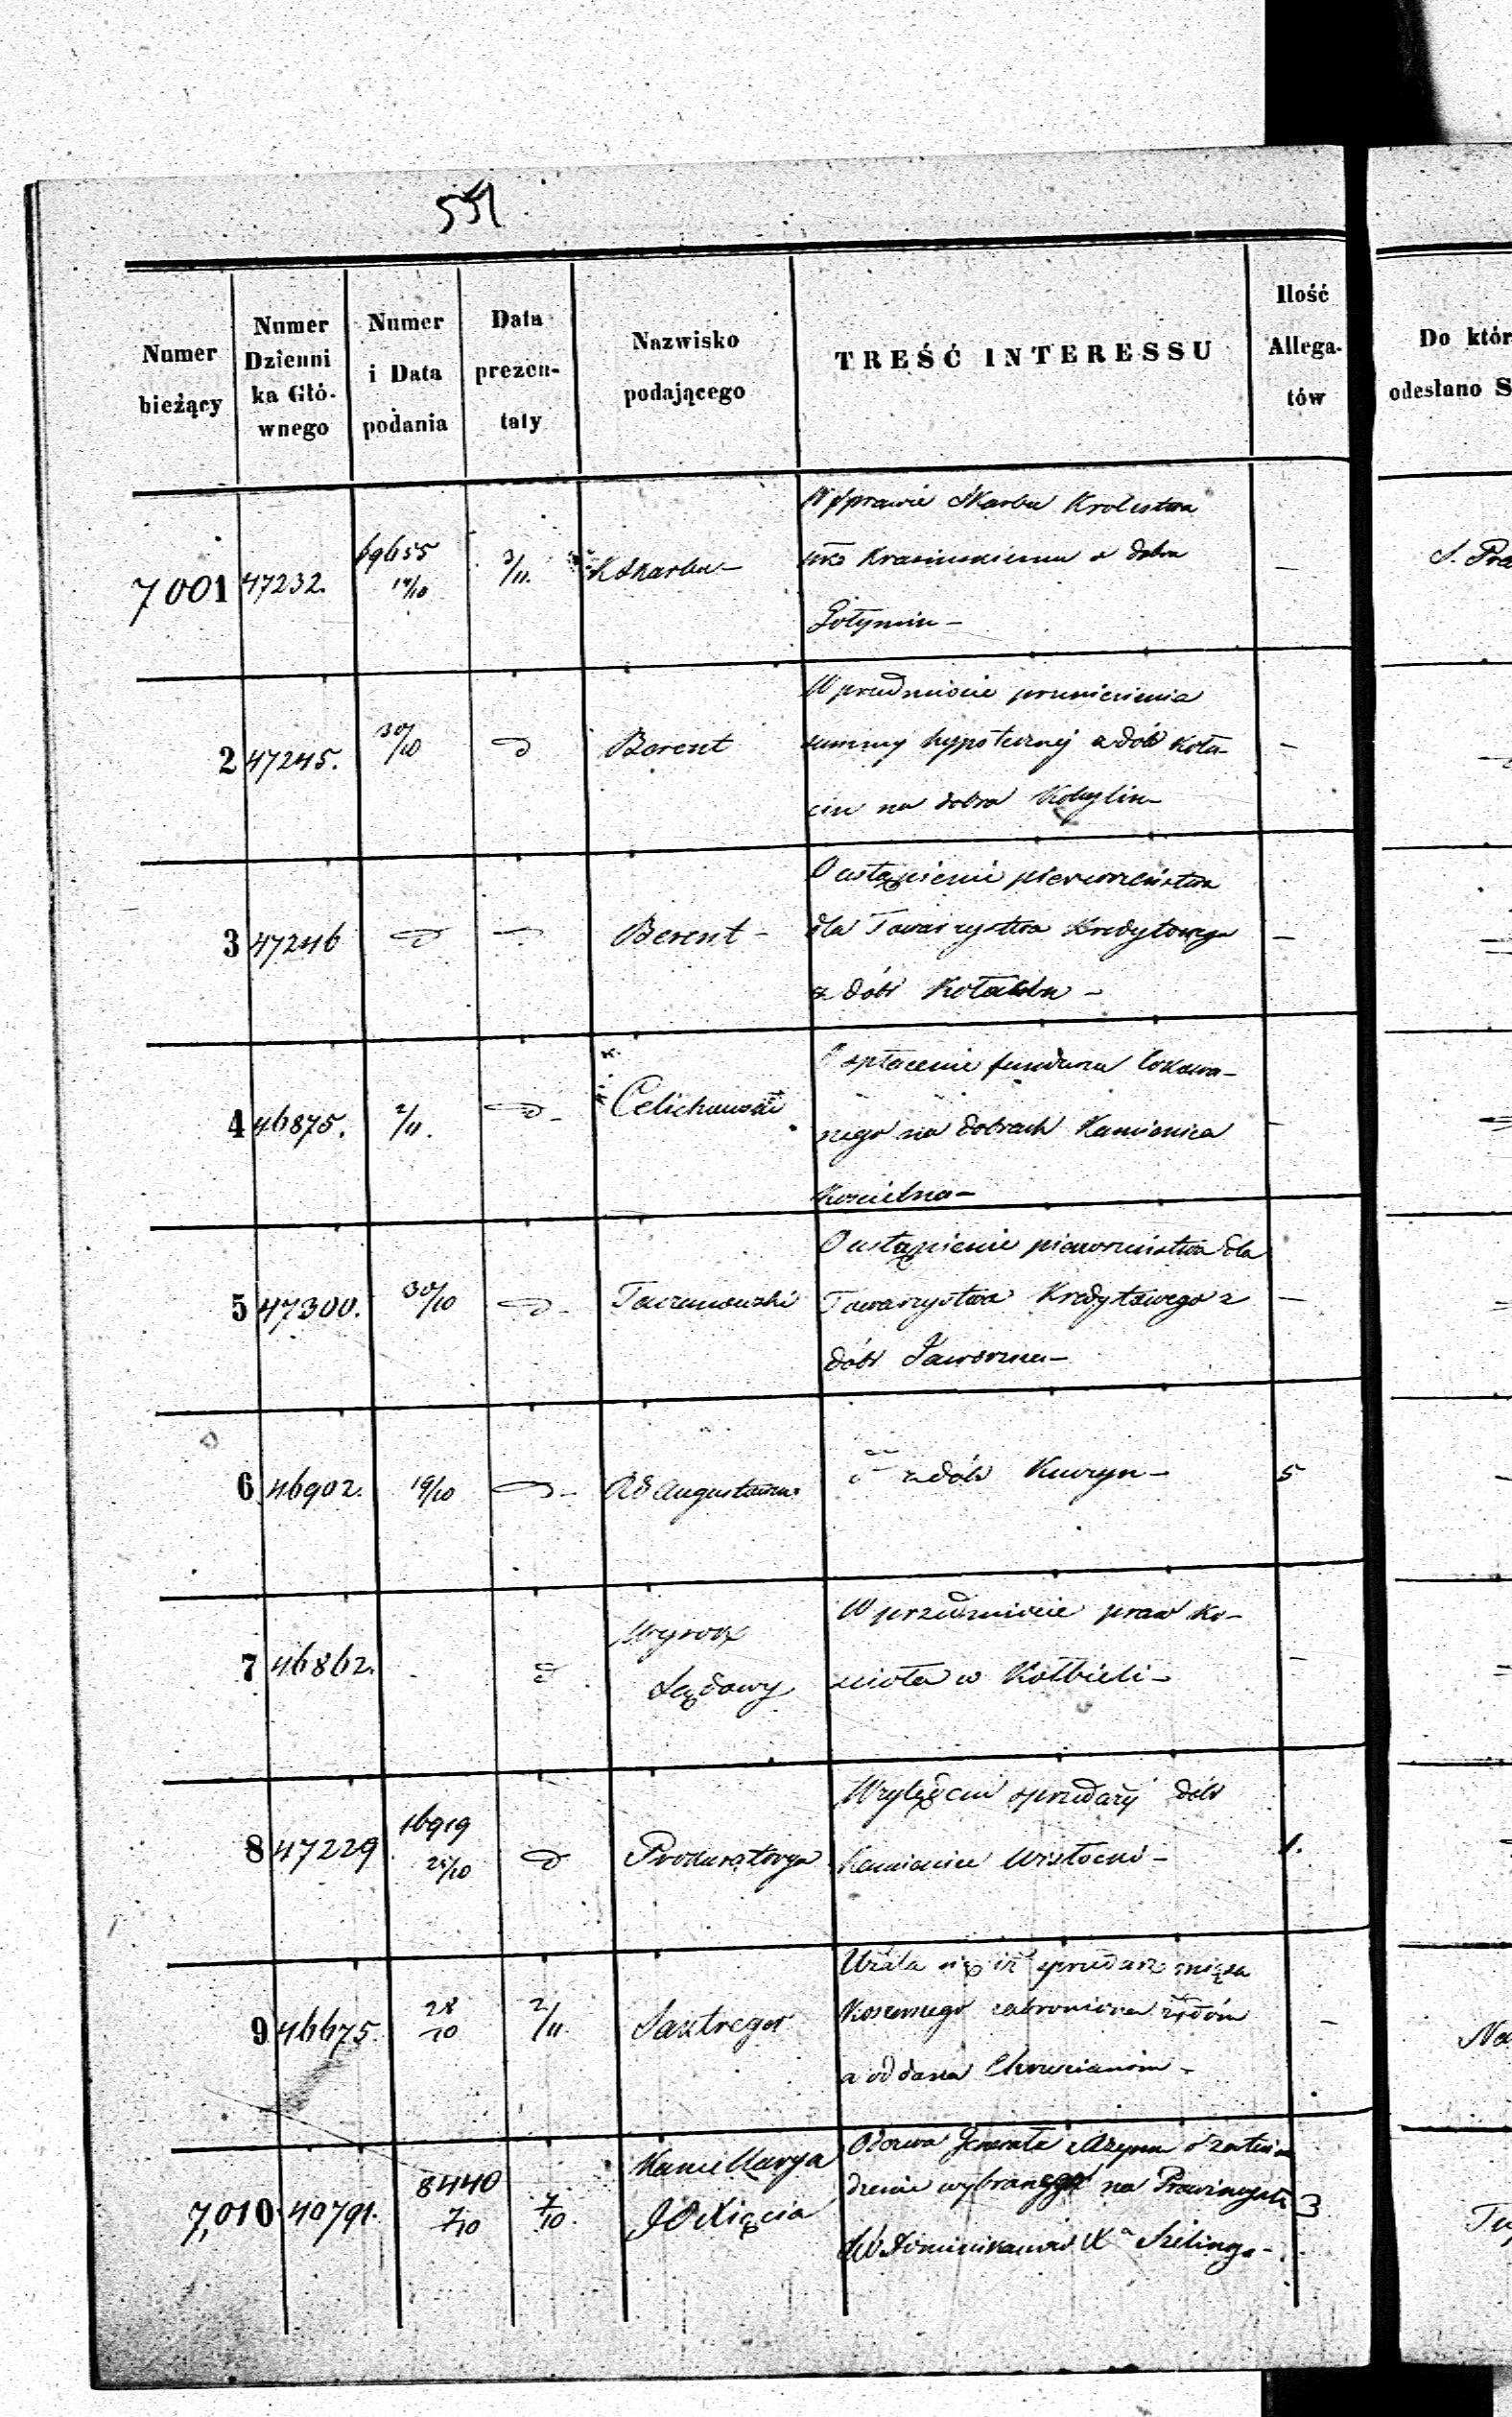 551
Numer
bieżący
Numer
Dzienni
ka Głó-
wnego
Numer
i Data
podania
Data
prezen-
taty
Nazwisko
podającego
TREŚĆ INTERESSU
Ilość
Allega-
tów
Do któr
odesłano S
7001 47232. 69655 3/11. KSkarbu -
W sprawie Skarbu Krolestwa
pko Krasinskiemu o dobra
Gołymin -
—
S. Pra
2 47245. 30/10 d Berent
W przedmiocie przeniesienia
summy hypotecznej z dób Koła-
cin na dobra Kobylin -
—
3 47246 d d Berent -
O ustąpienie pierwszeństwa
dla Towarzystwa Kredytowego
z dóbr Kołacin -
—
4 46875. 2/11. d - Celichowski
O spłacenie funduszu lokowa-
nego na dobrach Kamionka
Koscielna -
-
5 47300. 30/10 d - Taczanowski
O ustąpienie pierwszeństwa dla
Towarzystwa Kredytowego z
dóbr Jaworzna -
—
6 46902. 19/10 d - Ad Augustowsk.
z dóbr Kuczyn -
5
7 46862. d
Wyrok
Sądowy
W przedmiocie praw Ko-
scioła w Kołbieli -
-
8 47229 16919 d Prokuratorya
Względem sprzedaży dóbr
Kamienicy
1.
9 46675. 28/10 2/11. Saxtreger
Użala się iż sprzedaż mięsa
Koszernego zabroniona żydóm
a oddana Chrzescianóm -
-
Na
7,010 40791. 8440 7/10 7/10.
Kancellarya
JO Xięcia
Odezwa Generała z Rzymu o zatwier
dzenie wybranego na Prowincyała
XX Dominikanów Xa Szelinga -
3